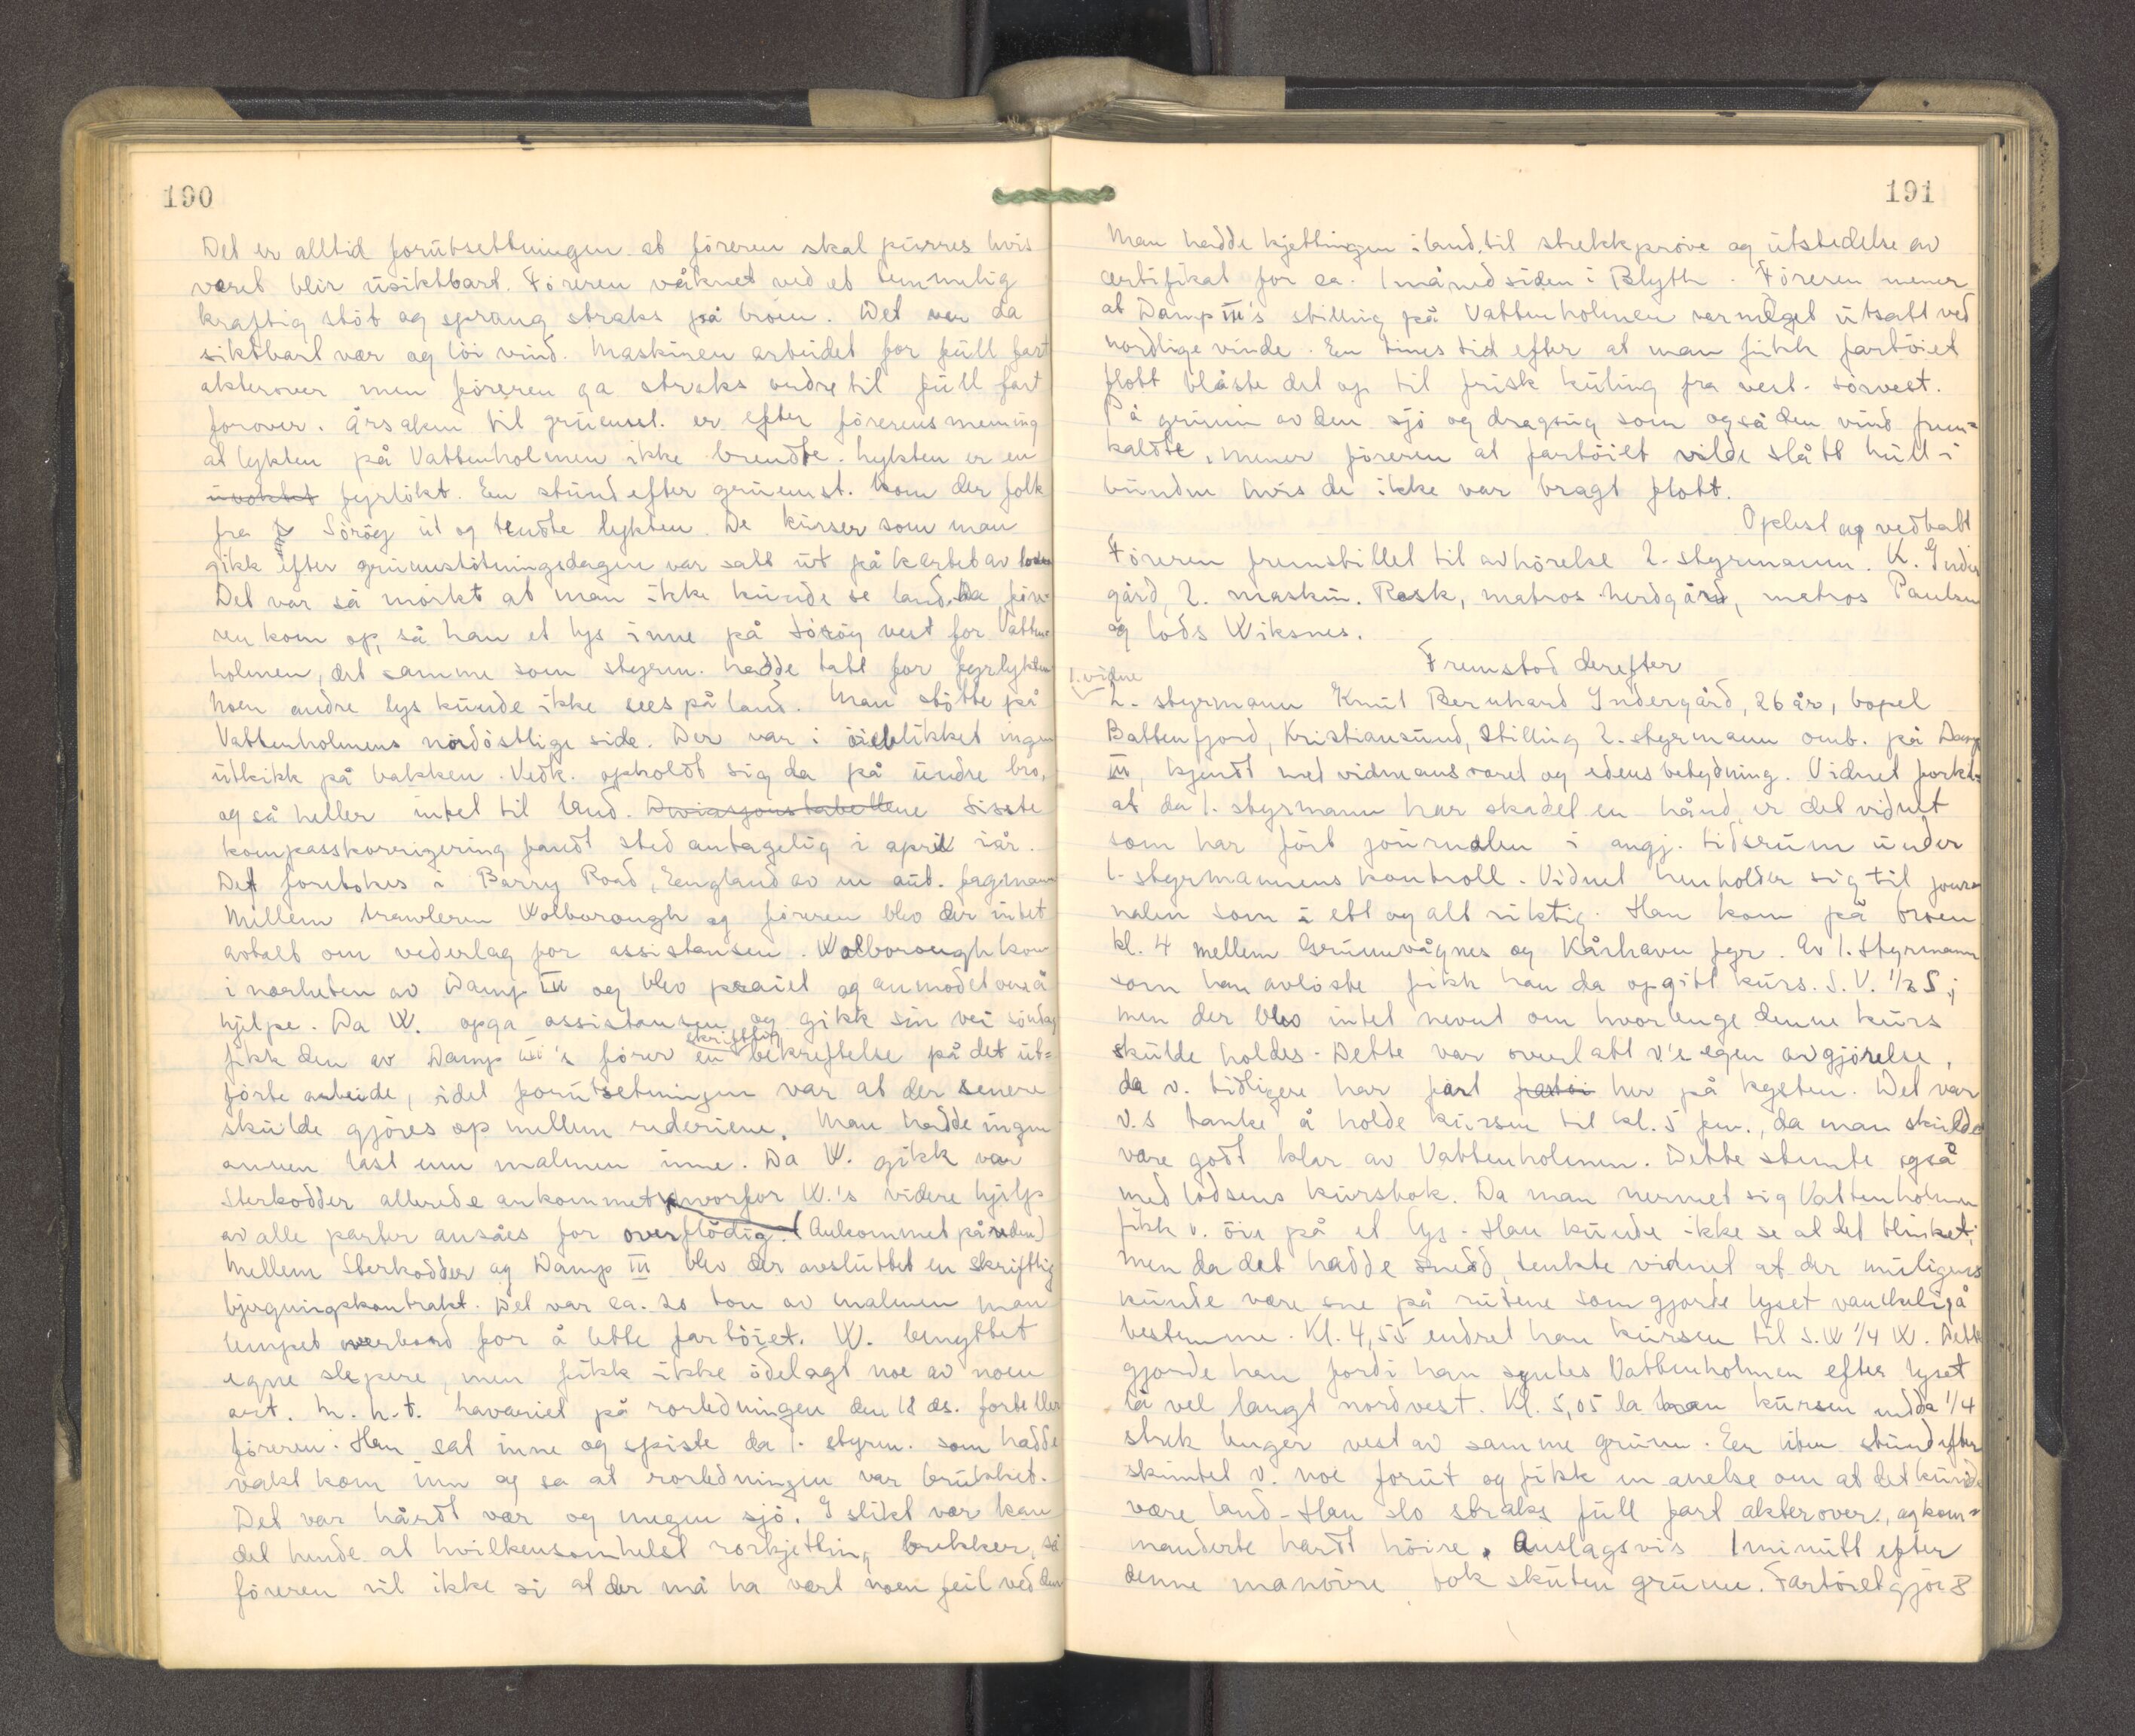 190
Det er alltid forutsettningen at föreren skal purres hvis
veret blir usiktbart. Föreren våknet ved et temmelig
kraftig stöt og sprang straks på broen. Det var da
siktbart vær og löi vind. Maskinen arbeidet for full fart
akterover men föreren ga straks ordre til full fart
forover. Årsaken til grunnst. er efter förerens mening
at lykten på Vattenholmen ikke brendte. Lykten er en
uvoktet fyrlykt. En stund efter grunnst. kom der folk
fra Söröy ut og tendte lykten. De kurser som man
gikk efter grunnstötningsdagen var satt ut på kartet av losen
Det var så mörkt at man ikke kunde se land. Da före-
ren kom op, så han et lys inne på Söröy vest for Vatten-
holmen, det samme som styrm. hadde tatt for fyrlykten
Noen andre lys kunde ikke sees på land. Man stötte på
Vattenholmens nordöstlige side. Der var i öieblikket ingen
utkikk på bakken. Vedk. opholdt sig da på undre bro,
og så heller intet til land. Deviasjonstabellene Sisste
kompasskorrigering fandt sted antagelig i april iår.
Det foretokes i Barry Road, Eengland av en aut. fagmann
Mellem trawleren Wolborough og föreren blev der intet
avtalt om vederlag for assistansen. Wolborough kom
i nærheten av Damp III og blev praiet og anmodet om å
hjelpe. Da W. opga assistansen og gikk sin vei söndag
skriftlig
fikk den av Damp III's förer en bekreftelse på det ut=
förte arbeide, idet forutsetningen var at der senere
skulde gjöres op mellem rederiene. Man hadde ingen
annen last enn malmen inne. Da W. gikk var
Sterkodder allerede ankommet hvorfor W.'s videre hjelp
av alle parter ansåes for overflödig. (Ankommet på reden)
Mellem Sterkodder og Damp III blev der avsluttet en skriftlig
bjergningskontrakt. Det var ca. 20 ton av malmen man
lempet overbord for å lette fartöiet. W. benyttet
egne slepere, men fikk ikke ödelagt noe av noen
art. M.h.t. havariet på rorledningen den 18 ds. forteller
föreren: Han sat inne og spiste da 1. styrm. som hadde
vakt kom inn og sa at rorledningen var brukket.
Det var hårdt vær og megen sjö. I slikt vær kan
det hende at hvilkensomhelst rorkjetting brekker, så
föreren vil ikke si at der må ha vært noen feil ved den
191
Man hadde kjettingen i land til strekkpröve og utstedelse av
certifikat for ca. 1 måned siden i Blyth. Föreren mener
at Damp III's stilling på Vattenholmen var meget utsatt ved
nordlige vinde. En times tid efter at man fikk fartöiet
flott blåste det op til frisk kuling fra vest-sörvest.
På grunn av den sjö og dragsug som også den vind frem=
kaldte, mener föreren at fartöiet vilde slått hull i
bunden hvis de ikke var bragt flott.
Oplest og vedtatt
Föreren fremstillet til avhörelse 2-styrmann. K. Inder
gård, 2. maskin. Rosk, matros Nerdgård, matros Paulsen
og lods Wiksnes.
Fremstod derefter
1. vidne
2. styrmann Knut Bernhard Indergård, 26 år, bopel
Battenfjord, Kristiansund, Stilling 2. styrmann omb. på Damp
III, kjendt met vidneansvaret og edens betydning. Vidnet forkl=
at da 1. styrmann har skadet en hånd, er det vidnet
som har fört journalen i angj. tidsrum under
1. styrmannens kontroll. Vidnet henholder sig til jour=
nalen som i ett og alt riktig. Han kom på broen
kl. 4 mellem Grunnvågnes og Kårhavn fyr. Av 1. Styrmann
som han avlöste fikk han da opgitt kurs. S.V. 1/2 S;
men der blev intet nevnt om hvorlenge denne kurs
skulde holdes. Dette var overlatt v's egen avgjörelse,
da v. tidligere har fart her på kysten. Det var
v.s tanke å holde kursen til kl. 5 fm., da man skulde
være godt klar av Vattenholmen. Dette stemte også
med lodsens kursbok. Da man nermet sig Vattenholmen
fikk v. öie på et lys. Han kunde ikke se at det blinket;
men da det hadde sneod, tenkte vidnet at der muligens
kunde være sne på rutene som gjorde lyset vanskelig å
bestemme. Kl. 4,55 endret han kursen til S.W 1/4 W. Dette
gjorde han fordi han syntes Vattenholmen efter lyset
lå vel langt nordvest. Kl. 5,05 la han kursen endda 1/4
strek lenger vest av samme grunn. Een liten stund efter
skimtet v. noe forut og fikk en anelse om at det kunde
være land. Han slo straks full fart akterover., og kom=
manderte hardt höire. Anslagsvis 1 minutt efter
denne manövre tok skuten grunn. Fartöiet gjör 8